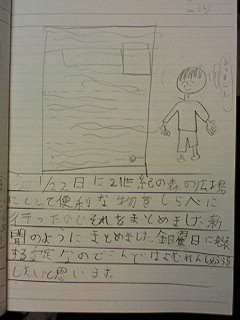 1/27日に21世紀の森の広場
にとって便利な物をしらべに
行ったのでそれをまとめました新
聞のようにまとめました金曜日に
する予定なのでこんどはよむれんしゅうを
したいと思います